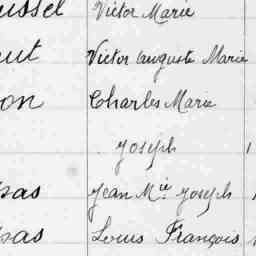 ussel Victor Marie
ut Victor Auguste Marie
on Charles Marie
Joseph 1
pas Jean Mie Joseph 1
pas Louis François